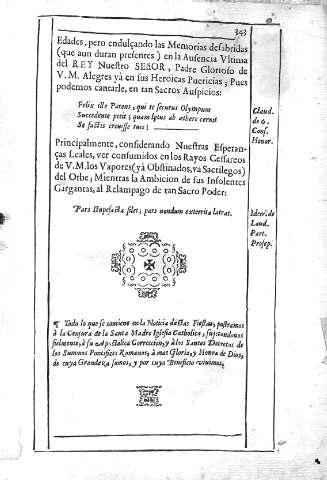 343
Edades, pero endulçando las Memorias desabridas
(que aun duran presentes) en la Ausencia Vltima
del REY Nuestro SEñOR, Padre Glorioso de
V.M. Alegres yà en sus Heroicas Puericias; Pues
podemos cantarle, en tan Sacros Auspicios:
Felix ille Parens, qui te securus Olympum
Succedente petit; quam lætus ab æthere cernit
Se factis creuisse tuis!
Claud.
de 6.
Cons.
Honor.
Principalmente, considerando Nuestras Esperan-
ças Leales, ver consumidos en los Rayos Cessareos
de V.M. los Vapores (yà Obstinados, ya Sacrilegos)
del Orbe; Mientras la Ambicion de sus Insolentes
Gargantas, al Relampago de tan Sacro Poder:
Pars stupefacta silet; pars nondum exterrita latrat.
Idem. de
Laud.
Part.
Proserp.
¶ Todo lo que se contiene en la Noticia destas Fiestas, postramos
à la Censura de la Santa Madre Iglesia Catholica, sujetandonos
fielmente, à su Apostolica Correccion, y à los Santos Decretos de
los Summos Pontifices Romanos, à mas Gloria, y Honra de Dios,
de cuya Grandeza somos, y por cuyo Beneficio vivimos.